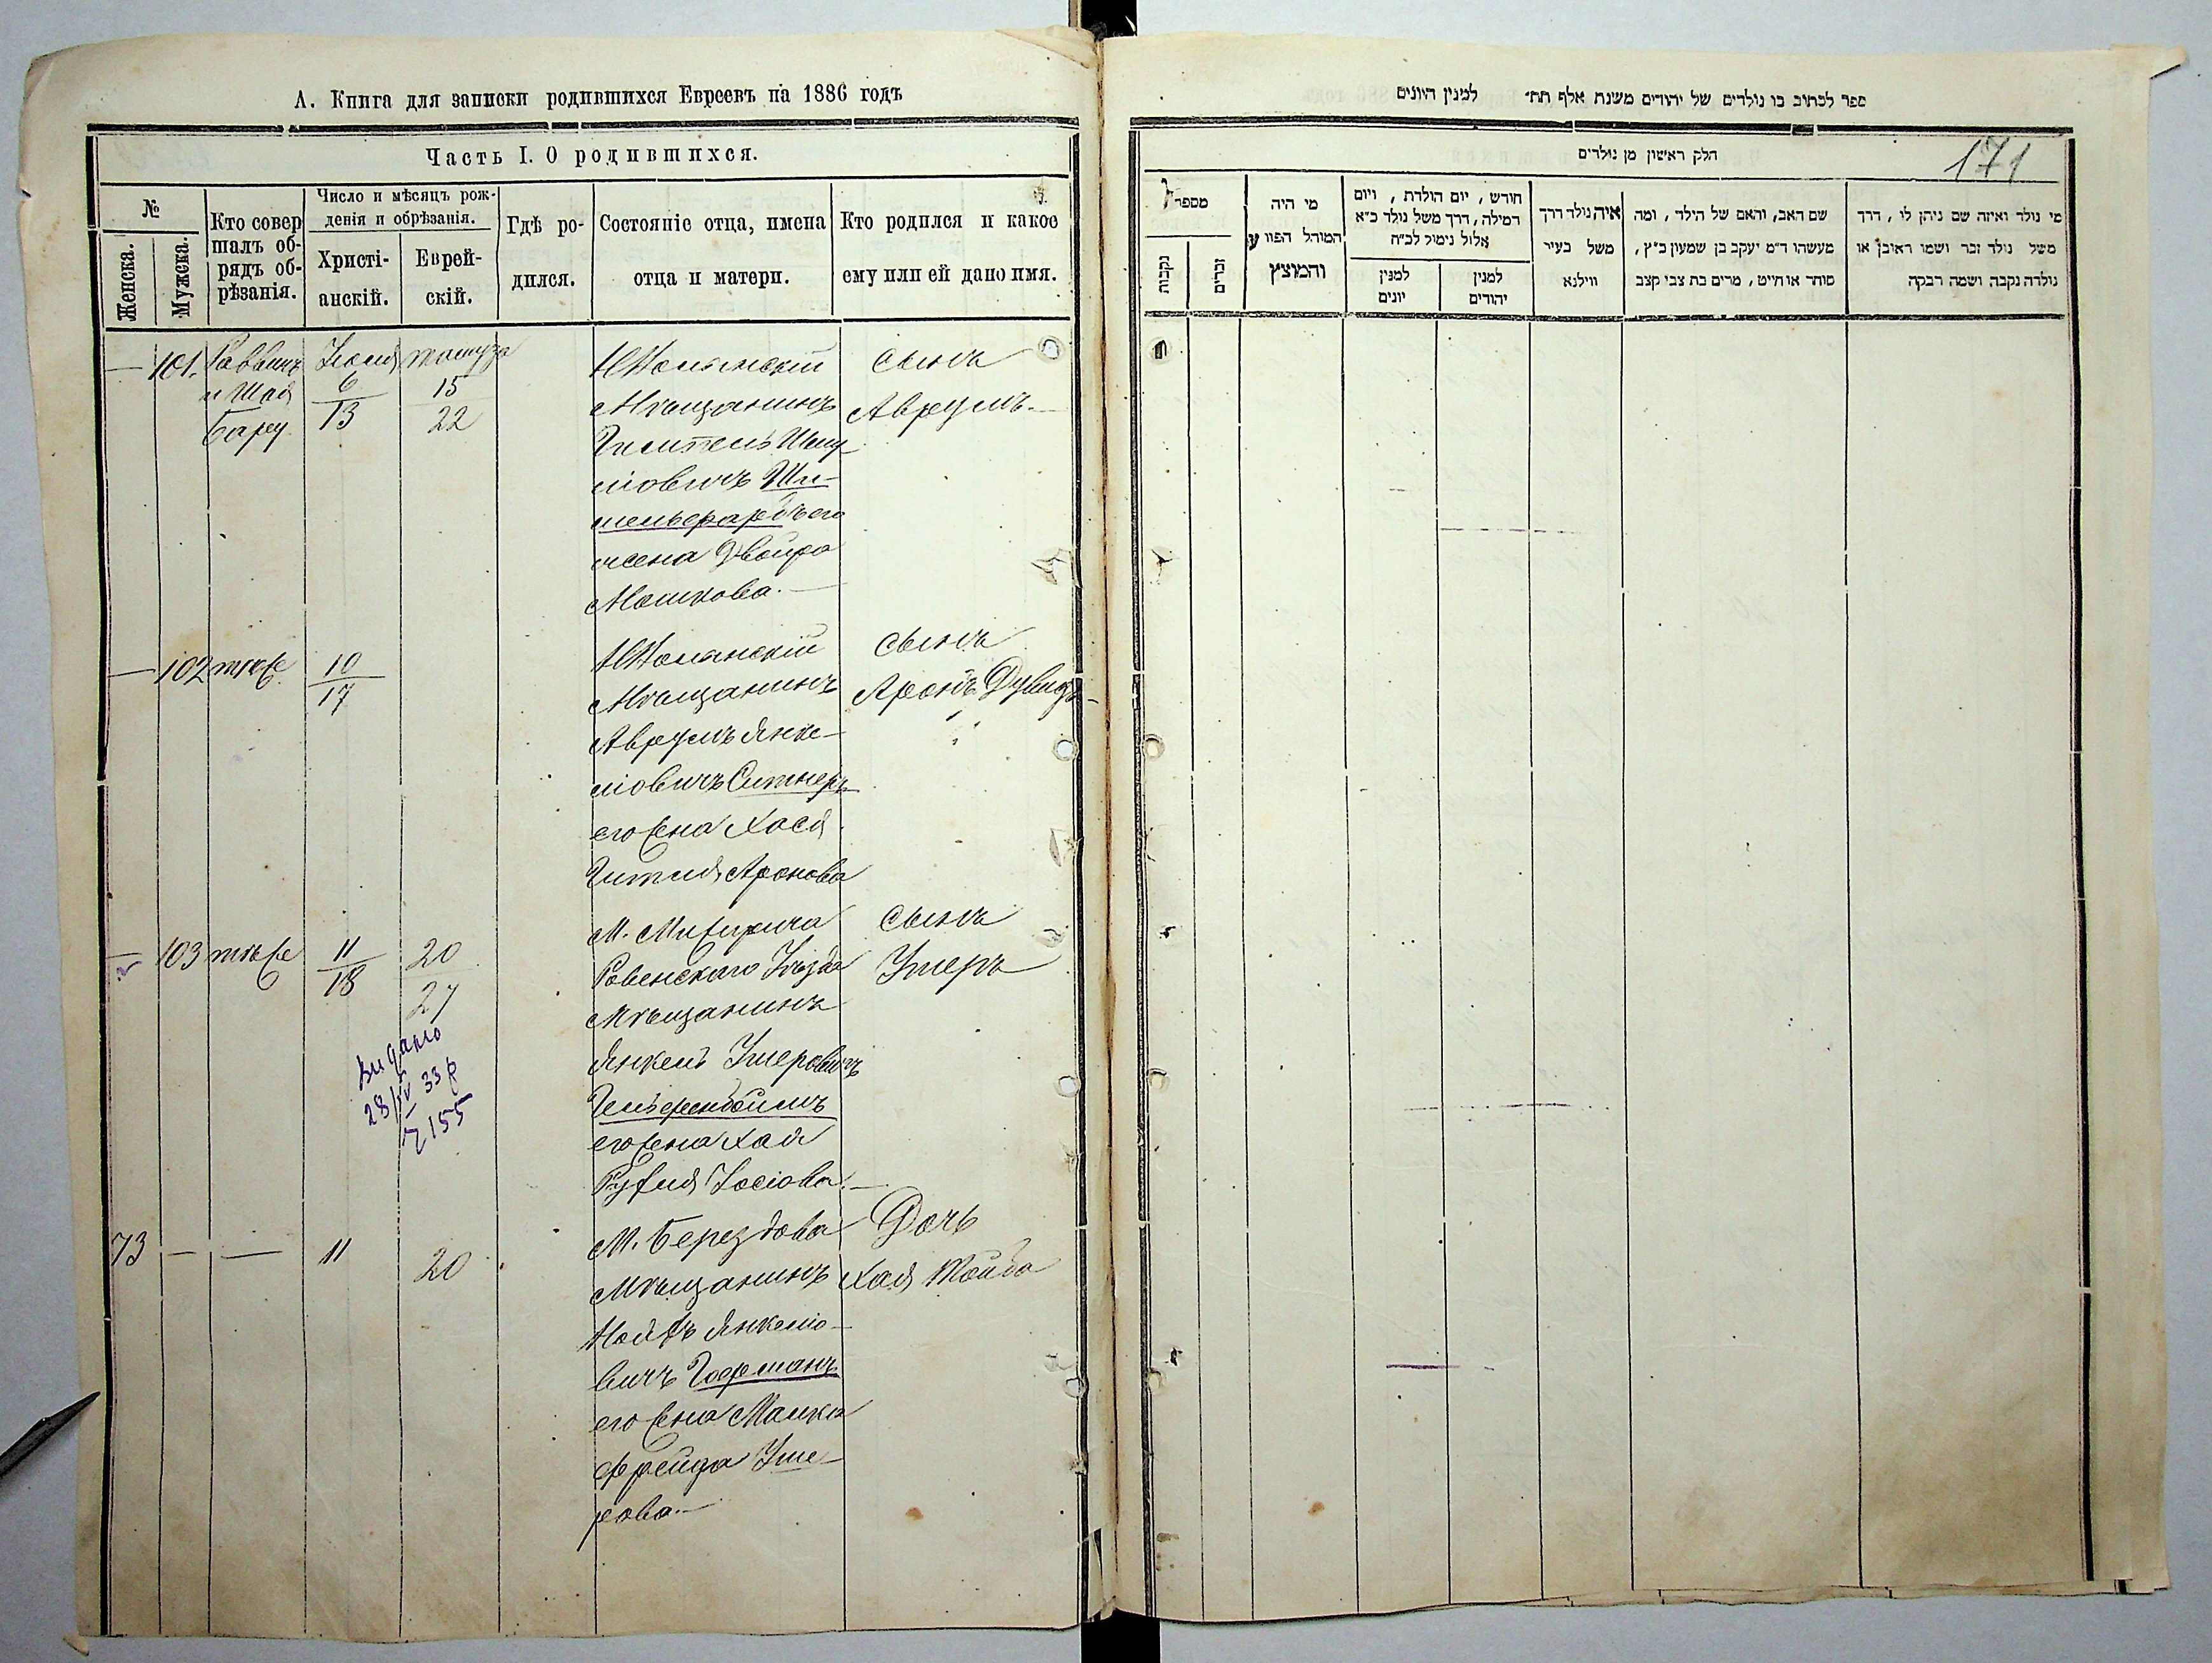 А. Книга для записки родившихся Евреевъ на 1886 годъ
Часть I. О родившихся.
№
Женска.
Мужска.
Кто совер
шалъ об-
рядъ об-
рѣзанія.
Число и мѣсяцъ рож-
денія и обрѣзанія.
Христі-
анскій.
Еврей-
скій.
Гдѣ ро-
дился.
Состояніе отца, имена
отца и матери.
Кто родился и какое
ему или ей дано имя.
— 101.
Раввинъ
и Шая
Іюля
6
13
тамуза
15
22
Мѣщанинъ
его
жена Двойра
Мошкова.—
сынъ
Аврумъ.—
— 102
тѣже
10
17
Мѣщанинъ
Аврумъ Янке-
ліовичъ Ситнеръ
его жена Хася
Гитля Аронова
сынъ
Аронъ Дувидъ
— 103
тѣже
11
18
20
27
видано
28/IV 33 р
2155
М. Межирича
Ровенскаго Уѣзда
Мѣщанинъ
Янкель Ушеровичъ
его жена Хая
Рухля Іосіова.—
сынъ
Ушеръ
73 — —
11
20
М. Берездова
Мѣщанинъ
Янкеліо-
вичъ Гофманъ
его жена Малка
Фрейда Уше-
рова.—
Дочь
Хая Тойба
ספר לכתוב בו נולדים של יהודים משנת אלף תת׳ למנין היונים
חלק ראשון מן נולדים
171
מספר
נקבות
זכרים
מי היה
המוהל הפורע
והמוצץ
חודש, יום הולדת, ויום
המילה, דרך משל נולד כ״א
אלול נימול לכ״ח
למנין
יונים
למנין
יהודים
איה נולד דרך
משל בעיר
ווילנא
שם האב, והאם של הילד, ומה
מעשהו ד״מ יעקב בן שמעון כ״ץ,
סוחר או חייט, מרים בת צבי קצב
מי נולד ואיזה שם ניתן לו, דרך
משל נולד זכר ושמו ראובן או
נולדה נקבה ושמה רבקה